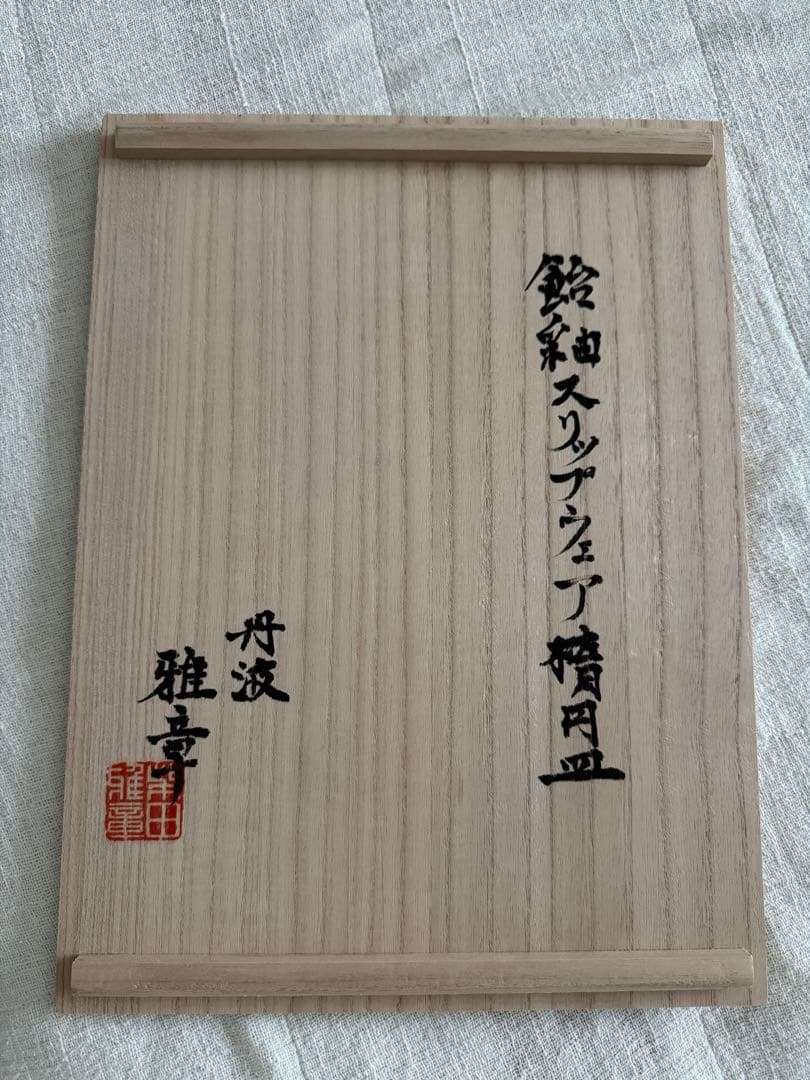 飴釉スリップウェア楕円皿
丹波
雅章
柴田
雅章